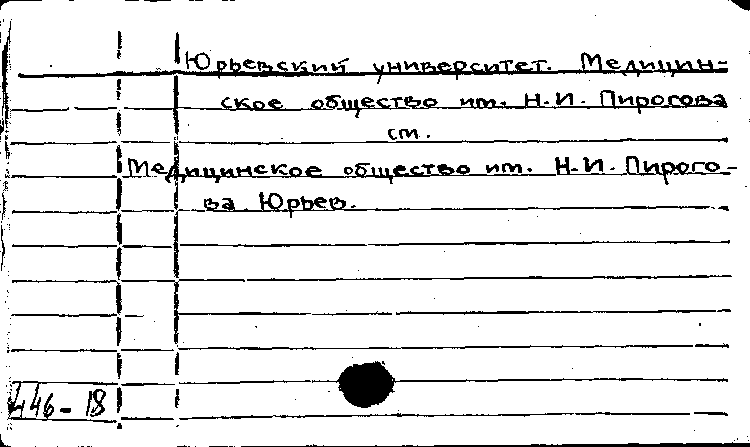 Юрьевский университет. Медицин-
ское общество им. Н.И. Пирогова
см.
Медицинское общество им. Н.И. Пирого-
ва Юрьев.
446-18